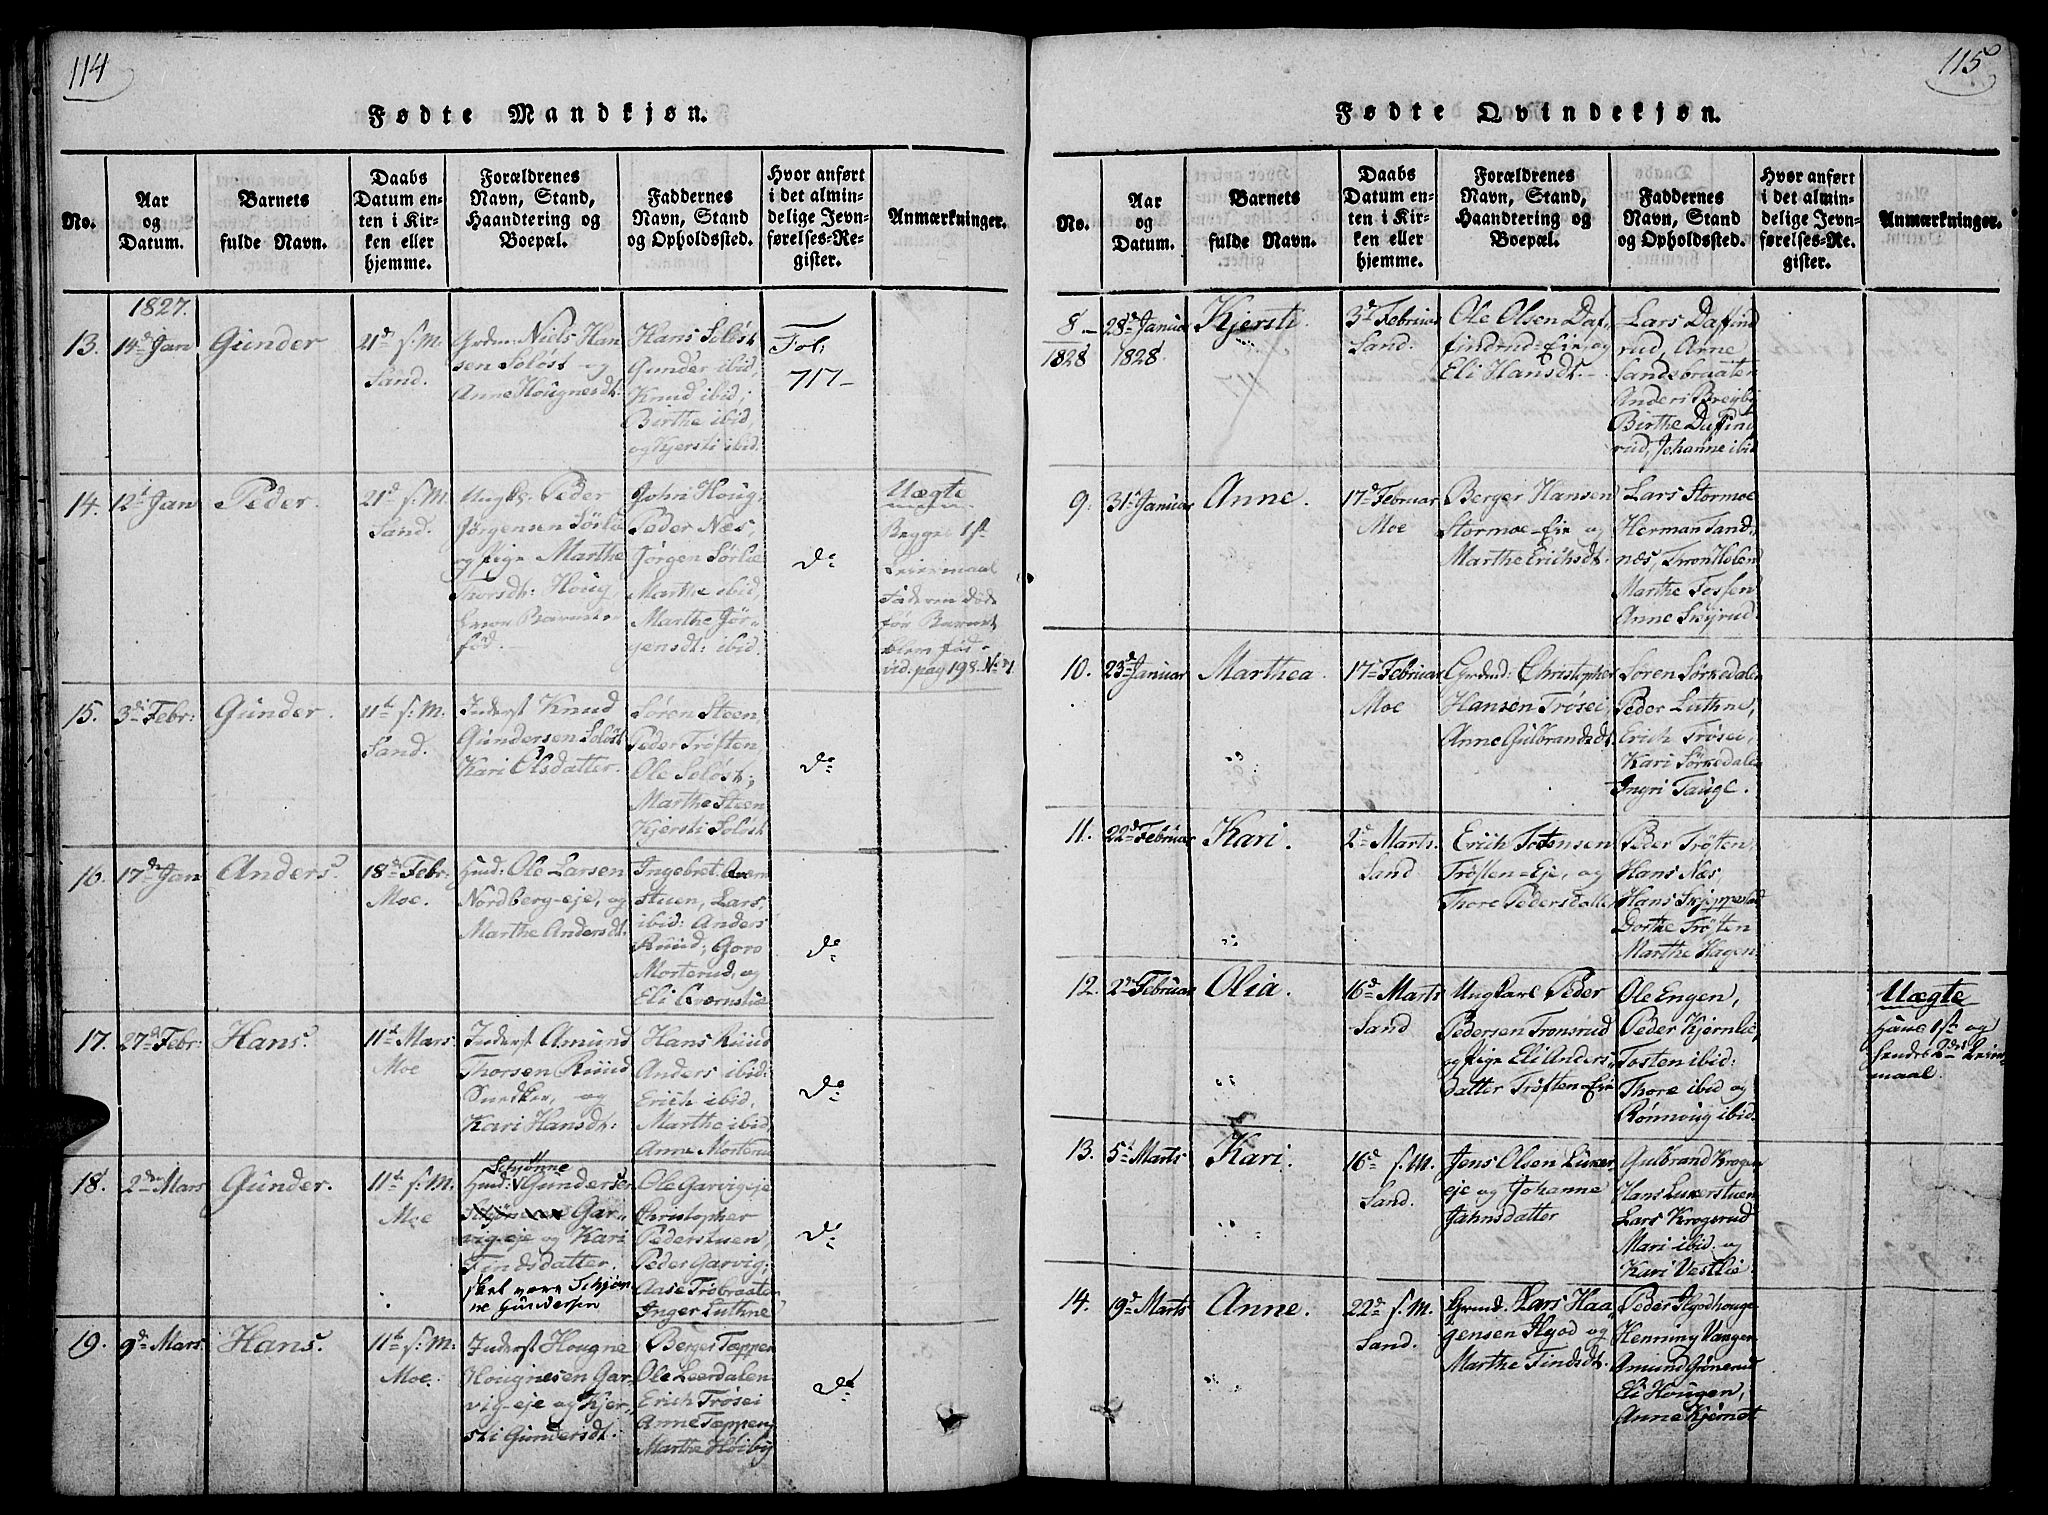 114
Fødte Mandkjøn.
No.
Aar
og
Datum.
Barnets
fulde Navn.
Daabs
Datum en-
ten i Kir-
ken eller
hjemme.
Forældrenes
Navn, Stand,
Haandtering og
Boepæl.
Faddernes
Navn, Stand
og Opholdssted.
Hvor anført
i det almin-
delige Jevn-
førelses-Re-
gister.
Anmærkninger.
1827.
13. 14d Jan
Gunder
21d s. M.
Sand.
Grdm: Niels Han
sen Soløst og
Anne Hougnesdt:
Hans Soløst
Gunder ibid,
Knud ibid;
Birthe ibid,
og Kjersti ibid.
Fol:
717-
14. 12t Jan
Peder.
21d s. M.
Sand.
Ungk: Peder
Jørgensen Sørlie
og Pige Marthe
Thorsdt: Houg,
fød.
John Houg,
Peder Næs,
Jørgen Sørlie
Marthe ibid,
Marthe Jør-
gensdt: ibid.
do
Uægte
Begges 1st
Leiermaal
Faderen døde
før Barnet
blev fød-
vid. pag 198. No 1
15. 3di Febr:
Gunder.
11t s: M.
Sand.
Inderst Knud
Gundersen Soløst
Kari Olsdatter.
Søren Steen,
Peder Trøften,
Ole Soløst;
Marthe Steen
Kjersti Soløst
do
16. 17d Jan
Anders.
18d Febr:
Moe.
Huusd: Ole Larsen
Nordberg-eje, og
Marthe Andersdt.
Ingebret Qværn
stuen, Lars,
ibid: Anders
Ruud; Goro
Morterud, og
Eli Qværnstue
do
17. 27d Febr:
Hans.
11t Mars
Moe
Inderst Amund
Thorsen Ruud
Snedker, og
Kari Hansdt:
Hans Ruud
Anders ibid:
Erich ibid,
Marthe ibid,
Anne Morterud
do
18. 2d Mars
Gunder.
11t s: M.
Moe
Schjønne
Huusd: Gundersen
Gar-
vig-eje og Kari
Findsdatter.
skal være Schjøn-
ne Gundersen
Ole Garvigeje
Christopher
Pederstuen,
Peder Garvig;
Aase Trøbraaten
Inger Luthne
do
19. 9d Mars.
Hans.
11t s: M.
Moe.
Inderst Hougne
Hougnesen Gar-
vig-eje og Kjer-
sti Gundersdt.
Berger Tæppen
Ole Leerdalen
Erich Trøsei
Anne Tæppen,
Marthe Høiby
do
115
Fødte Qvindekjøn.
No.
Aar
og
Datum.
Barnets
fulde Navn.
Daabs
Datum en-
ten i Kir-
ken eller
hjemme.
Forældrenes
Navn, Stand,
Haandtering og
Boepæl.
Faddernes
Navn, Stand
og Opholdssted.
Hvor anført
i det almin-
delige Jevn-
førelses-Re-
gister.
Anmærkninger.
8.
1828
28d Januar
1828.
Kjersti.
3d Februar
Sand.
Ole Olsen Daf-
findrud-Eie, og
Eli Hansdt.
Lars Daffind
rud, Arne
Sandsbraaten
Anders Breyby
Birthe Daffind
rud, Johanne ibid
9. 31t Januar
Anne.
17d Februar
Moe
Berger Hansen
Stormoe-Eie og
Marthe Erichsdt.
Lars Stormoe
Herman Sand-
næs, Thron Holen
Marthe Fossen
Anne Skyrud.
10. 23d Januar
Marthea.
17d Februar
Moe
Grdmd: Christopher
Hansen Trøsei,
Anne Gulbrandsdt.
Søren Sørkedalen
Peder Luthne,
Erich Trøsei,
Kari Sørkedalen
Ingri Taugl.
11. 22d Februar
Kari.
2d Marts.
Sand
Erich Tostensen
Trøften-Eje, og
Thore Pedersdatter
Peder Trøften,
Hans Næs,
Hans Skjeppestad
Dorthe Trøften
Marthe Hagen.
12. 2d Februar
Olia.
16d Marts
Sand
Ungkarl Peder
Pedersen Tronsrud
og Pige Eli Anders-
datter Trøften-Eie
Ole Engen,
Peder Kjernlie,
Tosten ibid:
Thore ibid og
Rønnoug ibid.
Uægte
Hans 1ste og
hendes 2det Leier-
maal.
13. 5t Marts
Kari.
16d s. M.
Sand.
Jens Olsen Luker
eje og Johanne
Jahnsdatter
Gulbrand Krogen
Hans Lukerstuen
Lars Krogsrud
Mari ibid: og
Kari Vestlie.
14. 19d Marts
Anne.
22d s. M.
Sand.
Grmd. Lars Haa-
gensen Hyod og
Marthe Findsdt.
Peder Hyodhouge
Henning Vangen
Amund Grønerud
Eli Hougen,
Anne Kjerndt